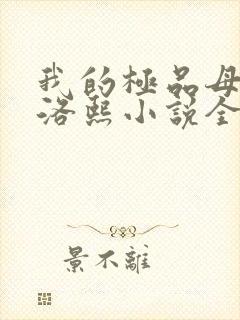 我的極品母
洛熙小說全
景不離